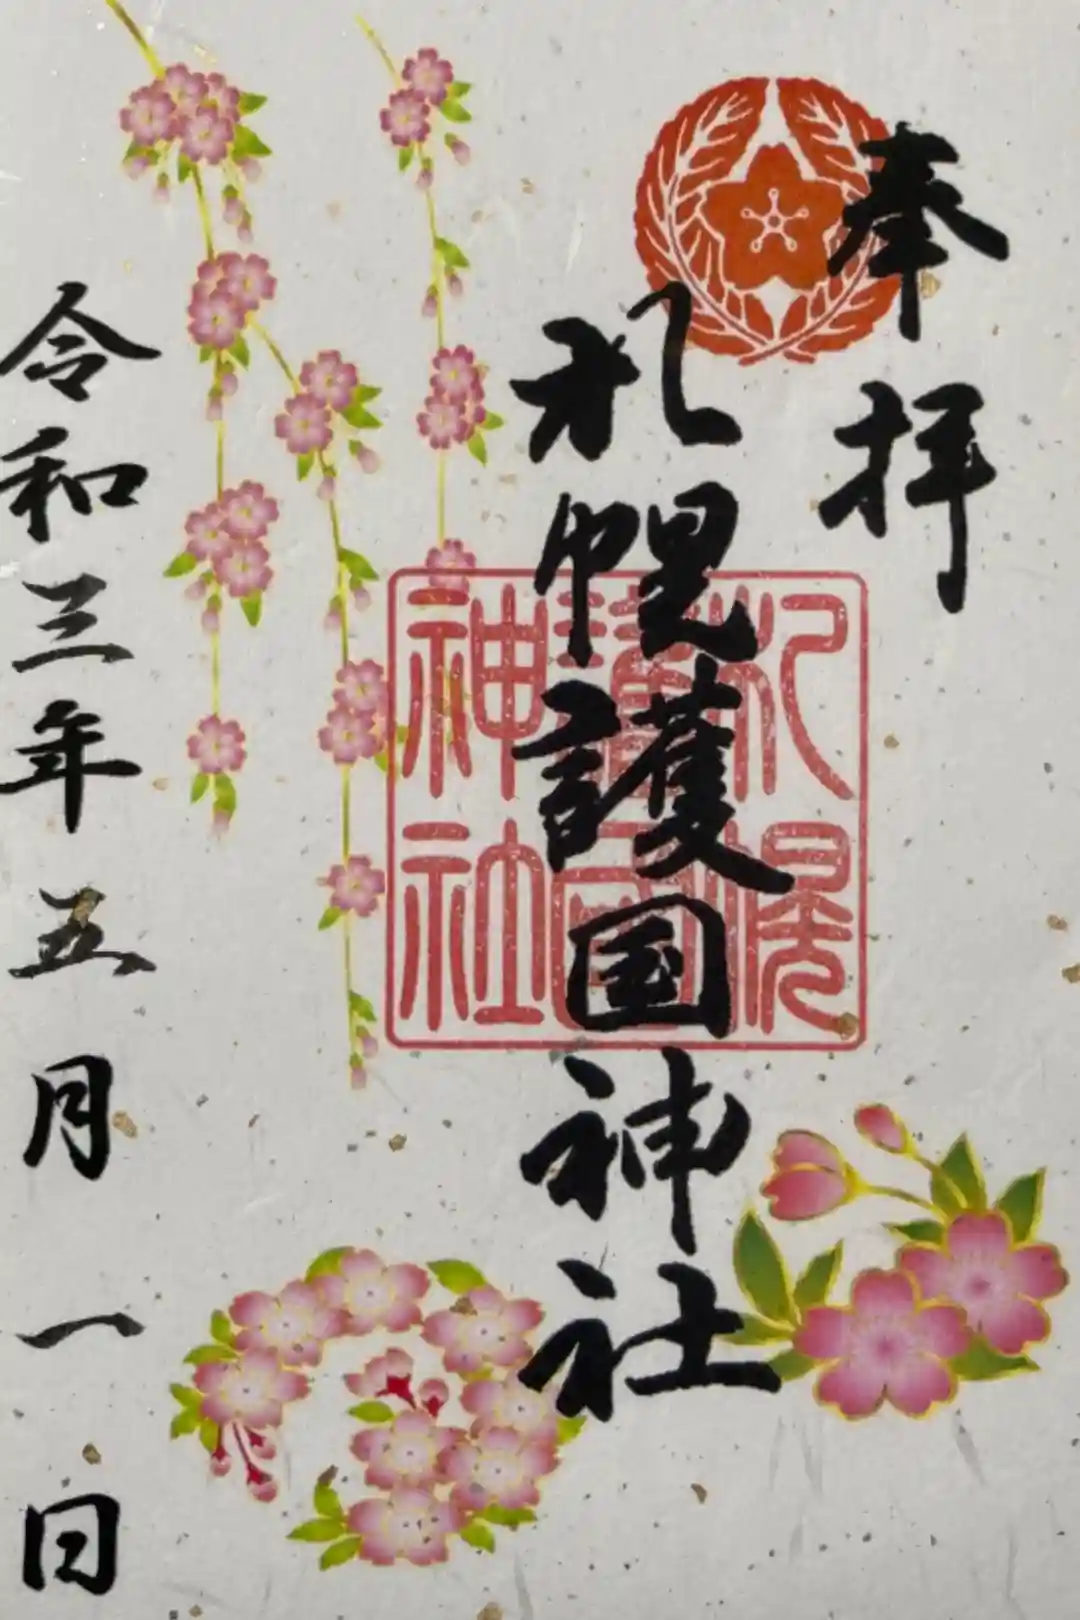 奉拝
札幌護国神社
札幌護國神社
令和三年五月一日